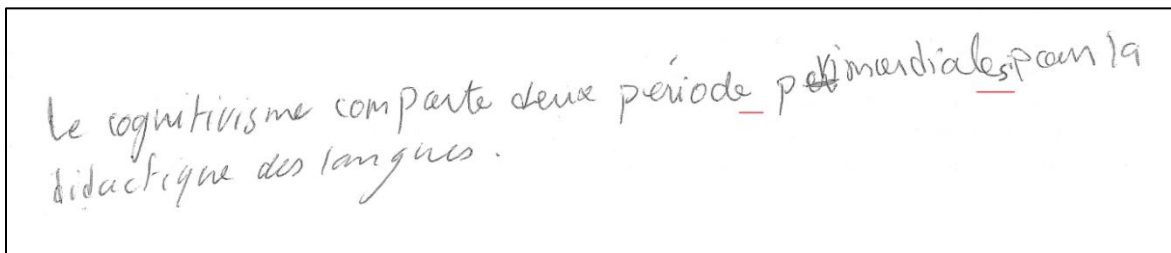 Le cognitivisme comporte deux période primordiales pour la
didactique des langues.